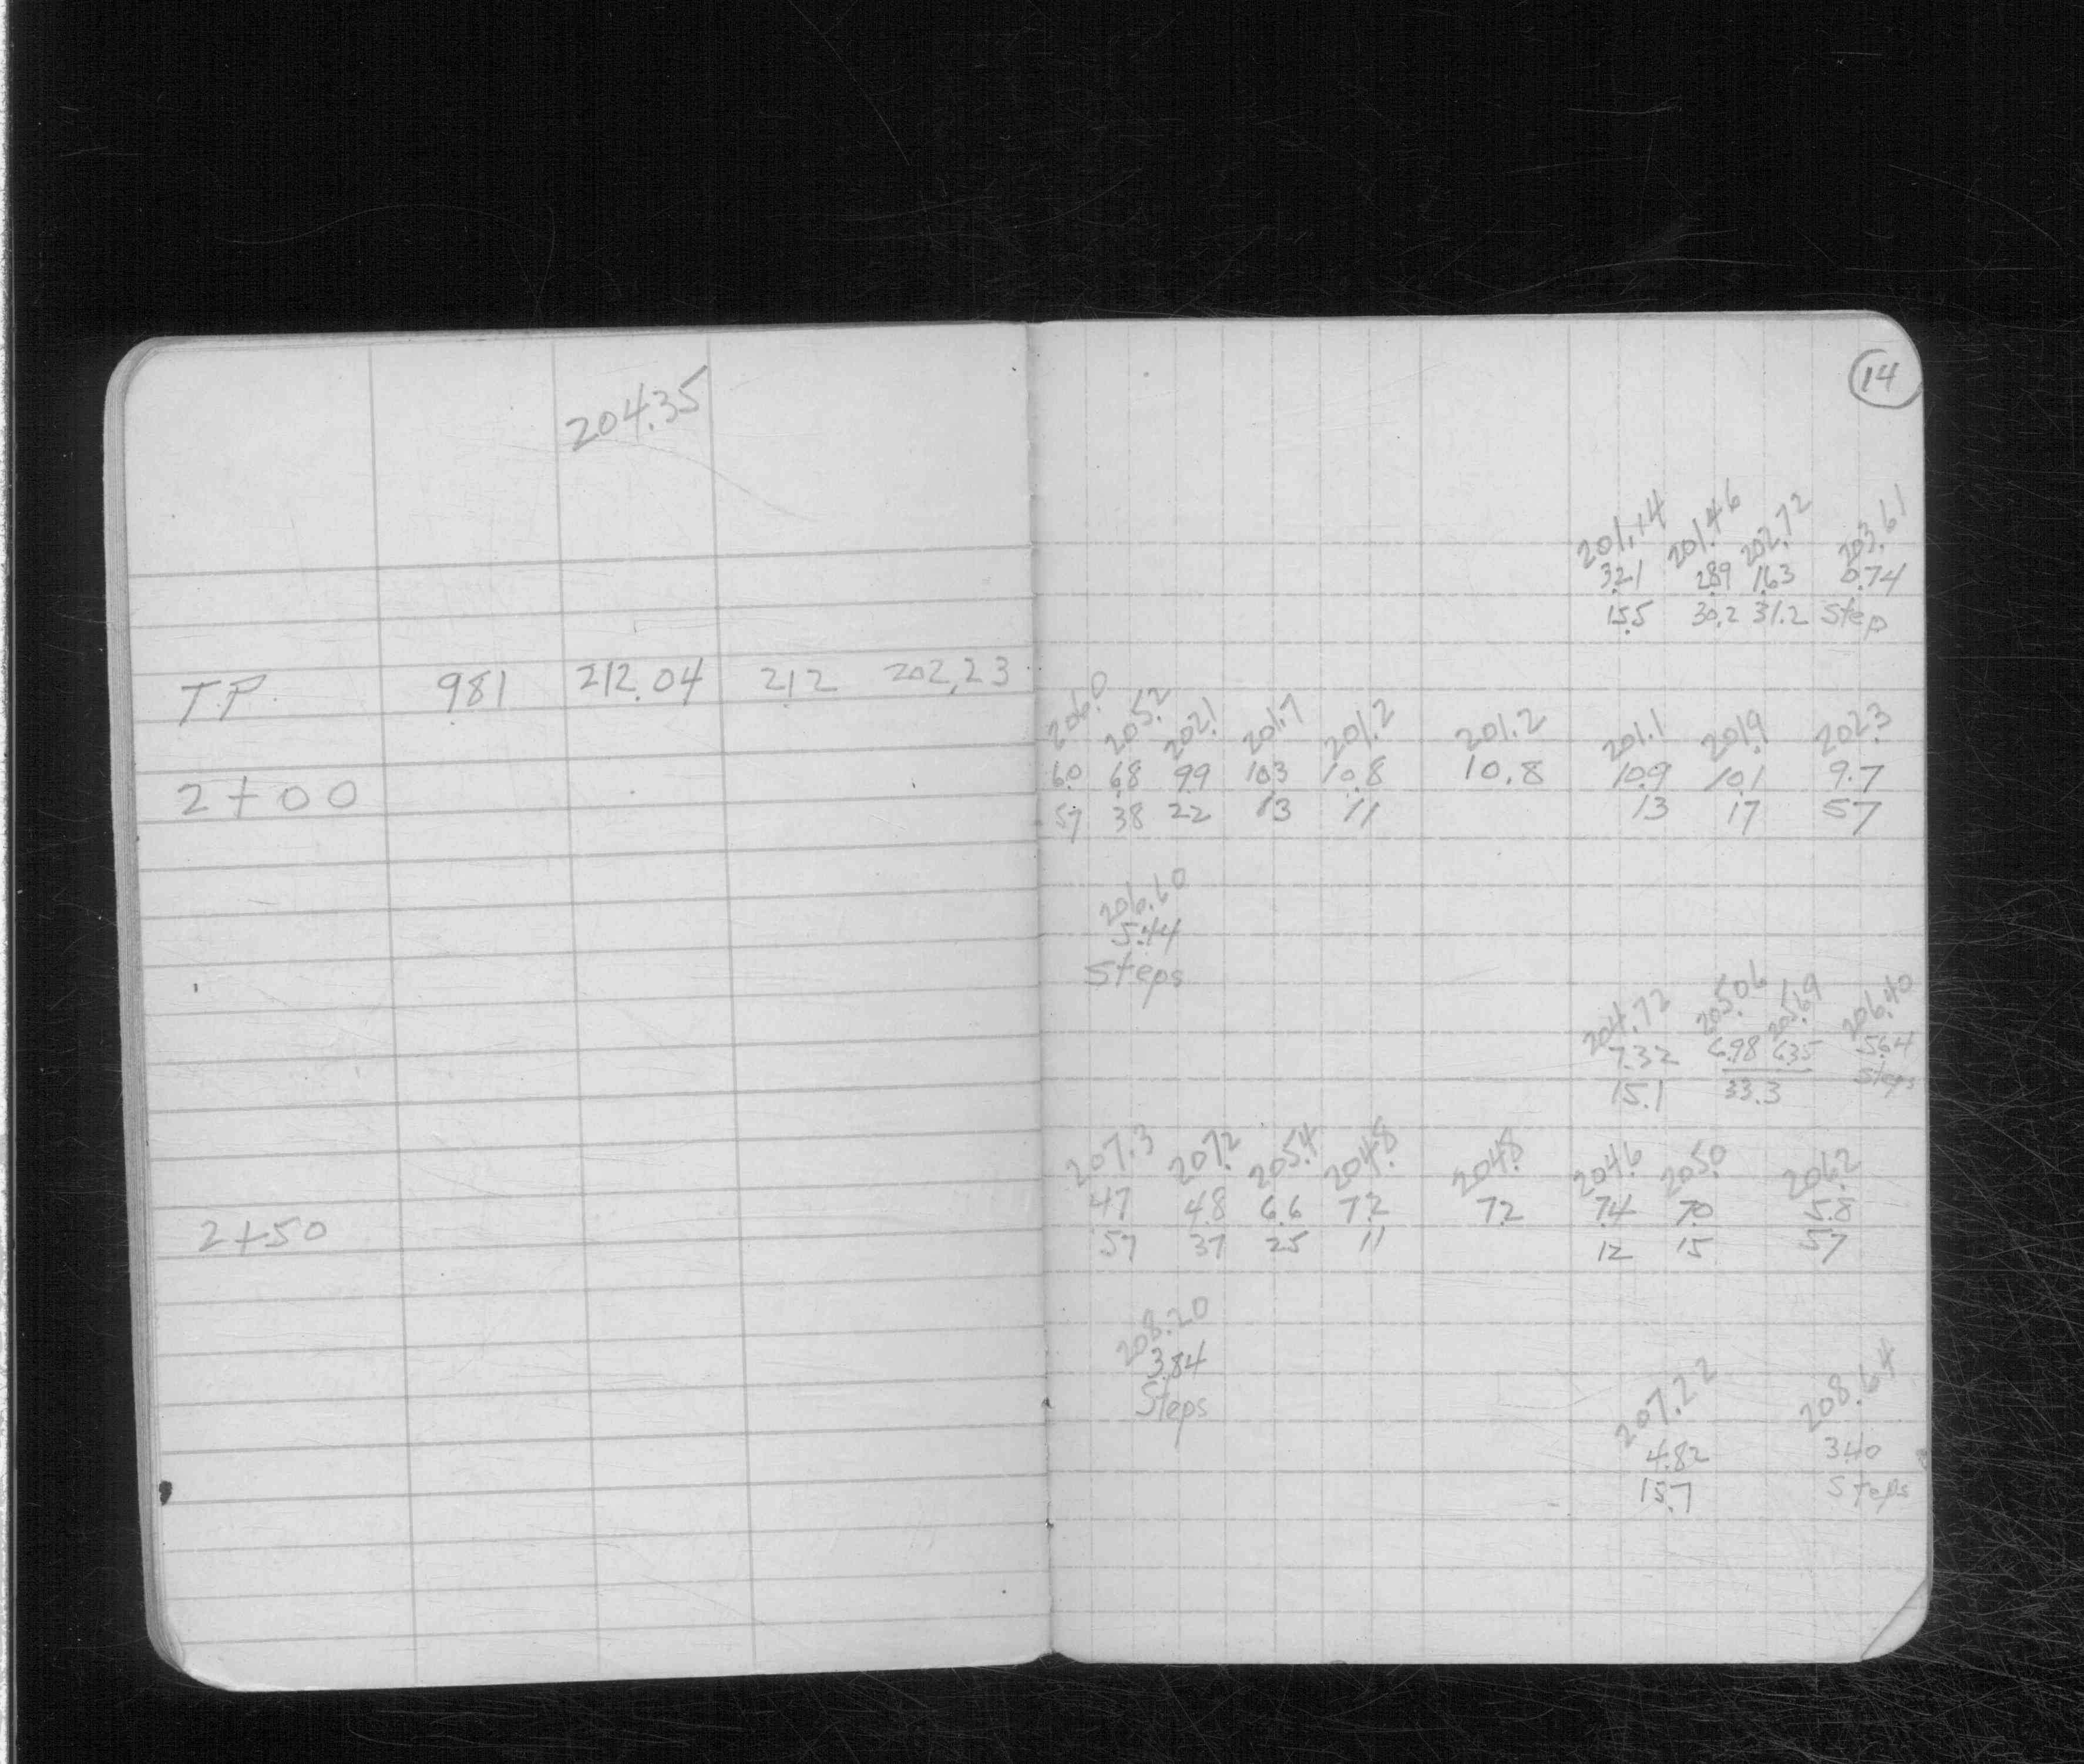 204.35
14
201.14 201.46 202.72 203.61
3.21 2.89 1.63 0.74
15.5 30.2 31.2 Step
T.P. 9.81 212.04 2.12 202.23
206.0 205.2 202.1 201.7 201.2 201.2 201.1 201.9 202.3
6.0 6.8 9.9 10.3 10.8 10.8 10.9 10.1 9.7
2+00 57 38 22 13 11 13 17 57
206.60
5.44
Steps
204.72 205.06 205.69 206.40
7.32 6.98 6.35 5.64
15.1 33.3 Steps
207.3 207.2 205.4 204.8 204.8 204.6 205.0 206.2
4.7 4.8 6.6 7.2 7.2 7.4 7.0 5.8
2+50 57 37 25 11 12 15 57
208.20
3.84
Steps
207.22 208.64
4.82 3.40
15.7 Steps